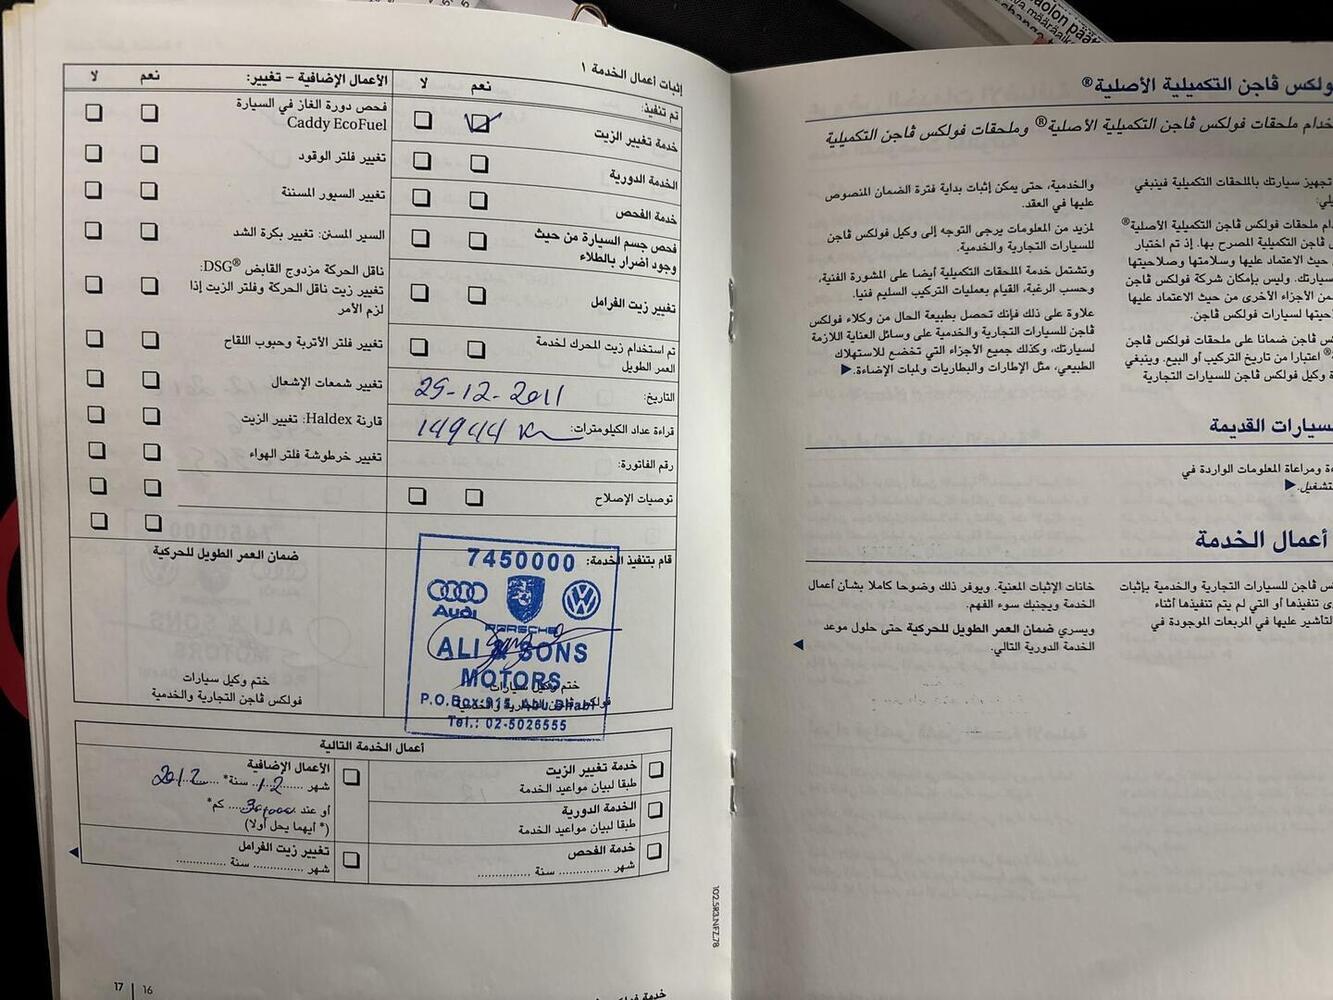 ڤولكس ڤاجن التكميلية الأصلية®
ملحقات فولكس ڤاجن التكميلية الأصلية® وملحقات فولكس ڤاجن التكميلية
تجهيز سيارتك بالملحقات التكميلية فينبغي
ملحقات فولكس ڤاجن التكميلية الأصلية®
ڤاجن التكميلية المصرح بها. إذ تم اختبار
حيث الاعتماد عليها وسلامتها وصلاحيتها
وليس بإمكان شركة فولكس ڤاجن
من الأجزاء الأخرى من حيث الاعتماد عليها
لسيارات فولكس ڤاجن.
ڤاجن ضمانا على ملحقات فولكس ڤاجن
® اعتبارا من تاريخ التركيب أو البيع. وينبغي
وكيل فولكس ڤاجن للسيارات التجارية
والخدمية، حتى يمكن إثبات بداية فترة الضمان المنصوص
عليها في العقد.
لمزيد من المعلومات يرجى التوجه إلى وكيل فولكس ڤاجن
للسيارات التجارية والخدمية.
وتشتمل خدمة الملحقات التكميلية أيضا على المشورة الفنية،
وحسب الرغبة، القيام بعمليات التركيب السليم فنيا.
علاوة على ذلك فإنك تحصل بطبيعة الحال من وكلاء فولكس
ڤاجن للسيارات التجارية والخدمية على وسائل العناية اللازمة
لسيارتك، وكذلك جميع الأجزاء التي تخضع للاستهلاك
الطبيعي، مثل الإطارات والبطاريات ولمبات الإضاءة.◀
القديمة
ومراعاة المعلومات الواردة في
أعمال الخدمة
ڤاجن للسيارات التجارية والخدمية بإثبات
تنفيذها أو التي لم يتم تنفيذها أثناء
عليها في المربعات الموجودة في
خانات الإثبات المعنية. ويوفر ذلك وضوحا كاملا بشأن أعمال
الخدمة ويجنبك سوء الفهم.
ويسري ضمان العمر الطويل للحركية حتى حلول موعد
الخدمة الدورية التالي.
إثبات أعمال الخدمة ١
تم تنفيذ: نعم لا
خدمة تغيير الزيت
الخدمة الدورية
خدمة الفحص
فحص جسم السيارة من حيث
وجود أضرار بالطلاء
تغيير زيت الفرامل
تم استخدام زيت المحرك لخدمة
العمر الطويل
التاريخ: 29-12-2011
قراءة عداد الكيلومترات: 14944 Km
رقم الفاتورة:
توصيات الإصلاح
قام بتنفيذ الخدمة:
7450000
Audi
PORSCHE
ALI & SONS
MOTORS
P.O.Box: 915, Abu Dhabi
Tel.: 02-5026555
ختم وكيل سيارات
فولكس ڤاجن التجارية والخدمية
الأعمال الإضافية – تغيير: نعم لا
فحص دورة الغاز في السيارة
Caddy EcoFuel
تغيير فلتر الوقود
تغيير السيور المسننة
السير المسنن: تغيير بكرة الشد
ناقل الحركة مزدوج القابض DSG®:
تغيير زيت ناقل الحركة وفلتر الزيت إذا
لزم الأمر
تغيير فلتر الأتربة وحبوب اللقاح
تغيير شمعات الإشعال
قارنة Haldex: تغيير الزيت
تغيير خرطوشة فلتر الهواء
ضمان العمر الطويل للحركية
ختم وكيل سيارات
فولكس ڤاجن التجارية والخدمية
أعمال الخدمة التالية
خدمة تغيير الزيت
طبقا لبيان مواعيد الخدمة
الخدمة الدورية
طبقا لبيان مواعيد الخدمة
خدمة الفحص
شهر .............. سنة ..............
الأعمال الإضافية
شهر 12 سنة* 2012
أو عند 30,000 كم*
(* أيهما يحل أولا)
تغيير زيت الفرامل
شهر .............. سنة ..............
102.5R3.NFZ.78
17 | 16